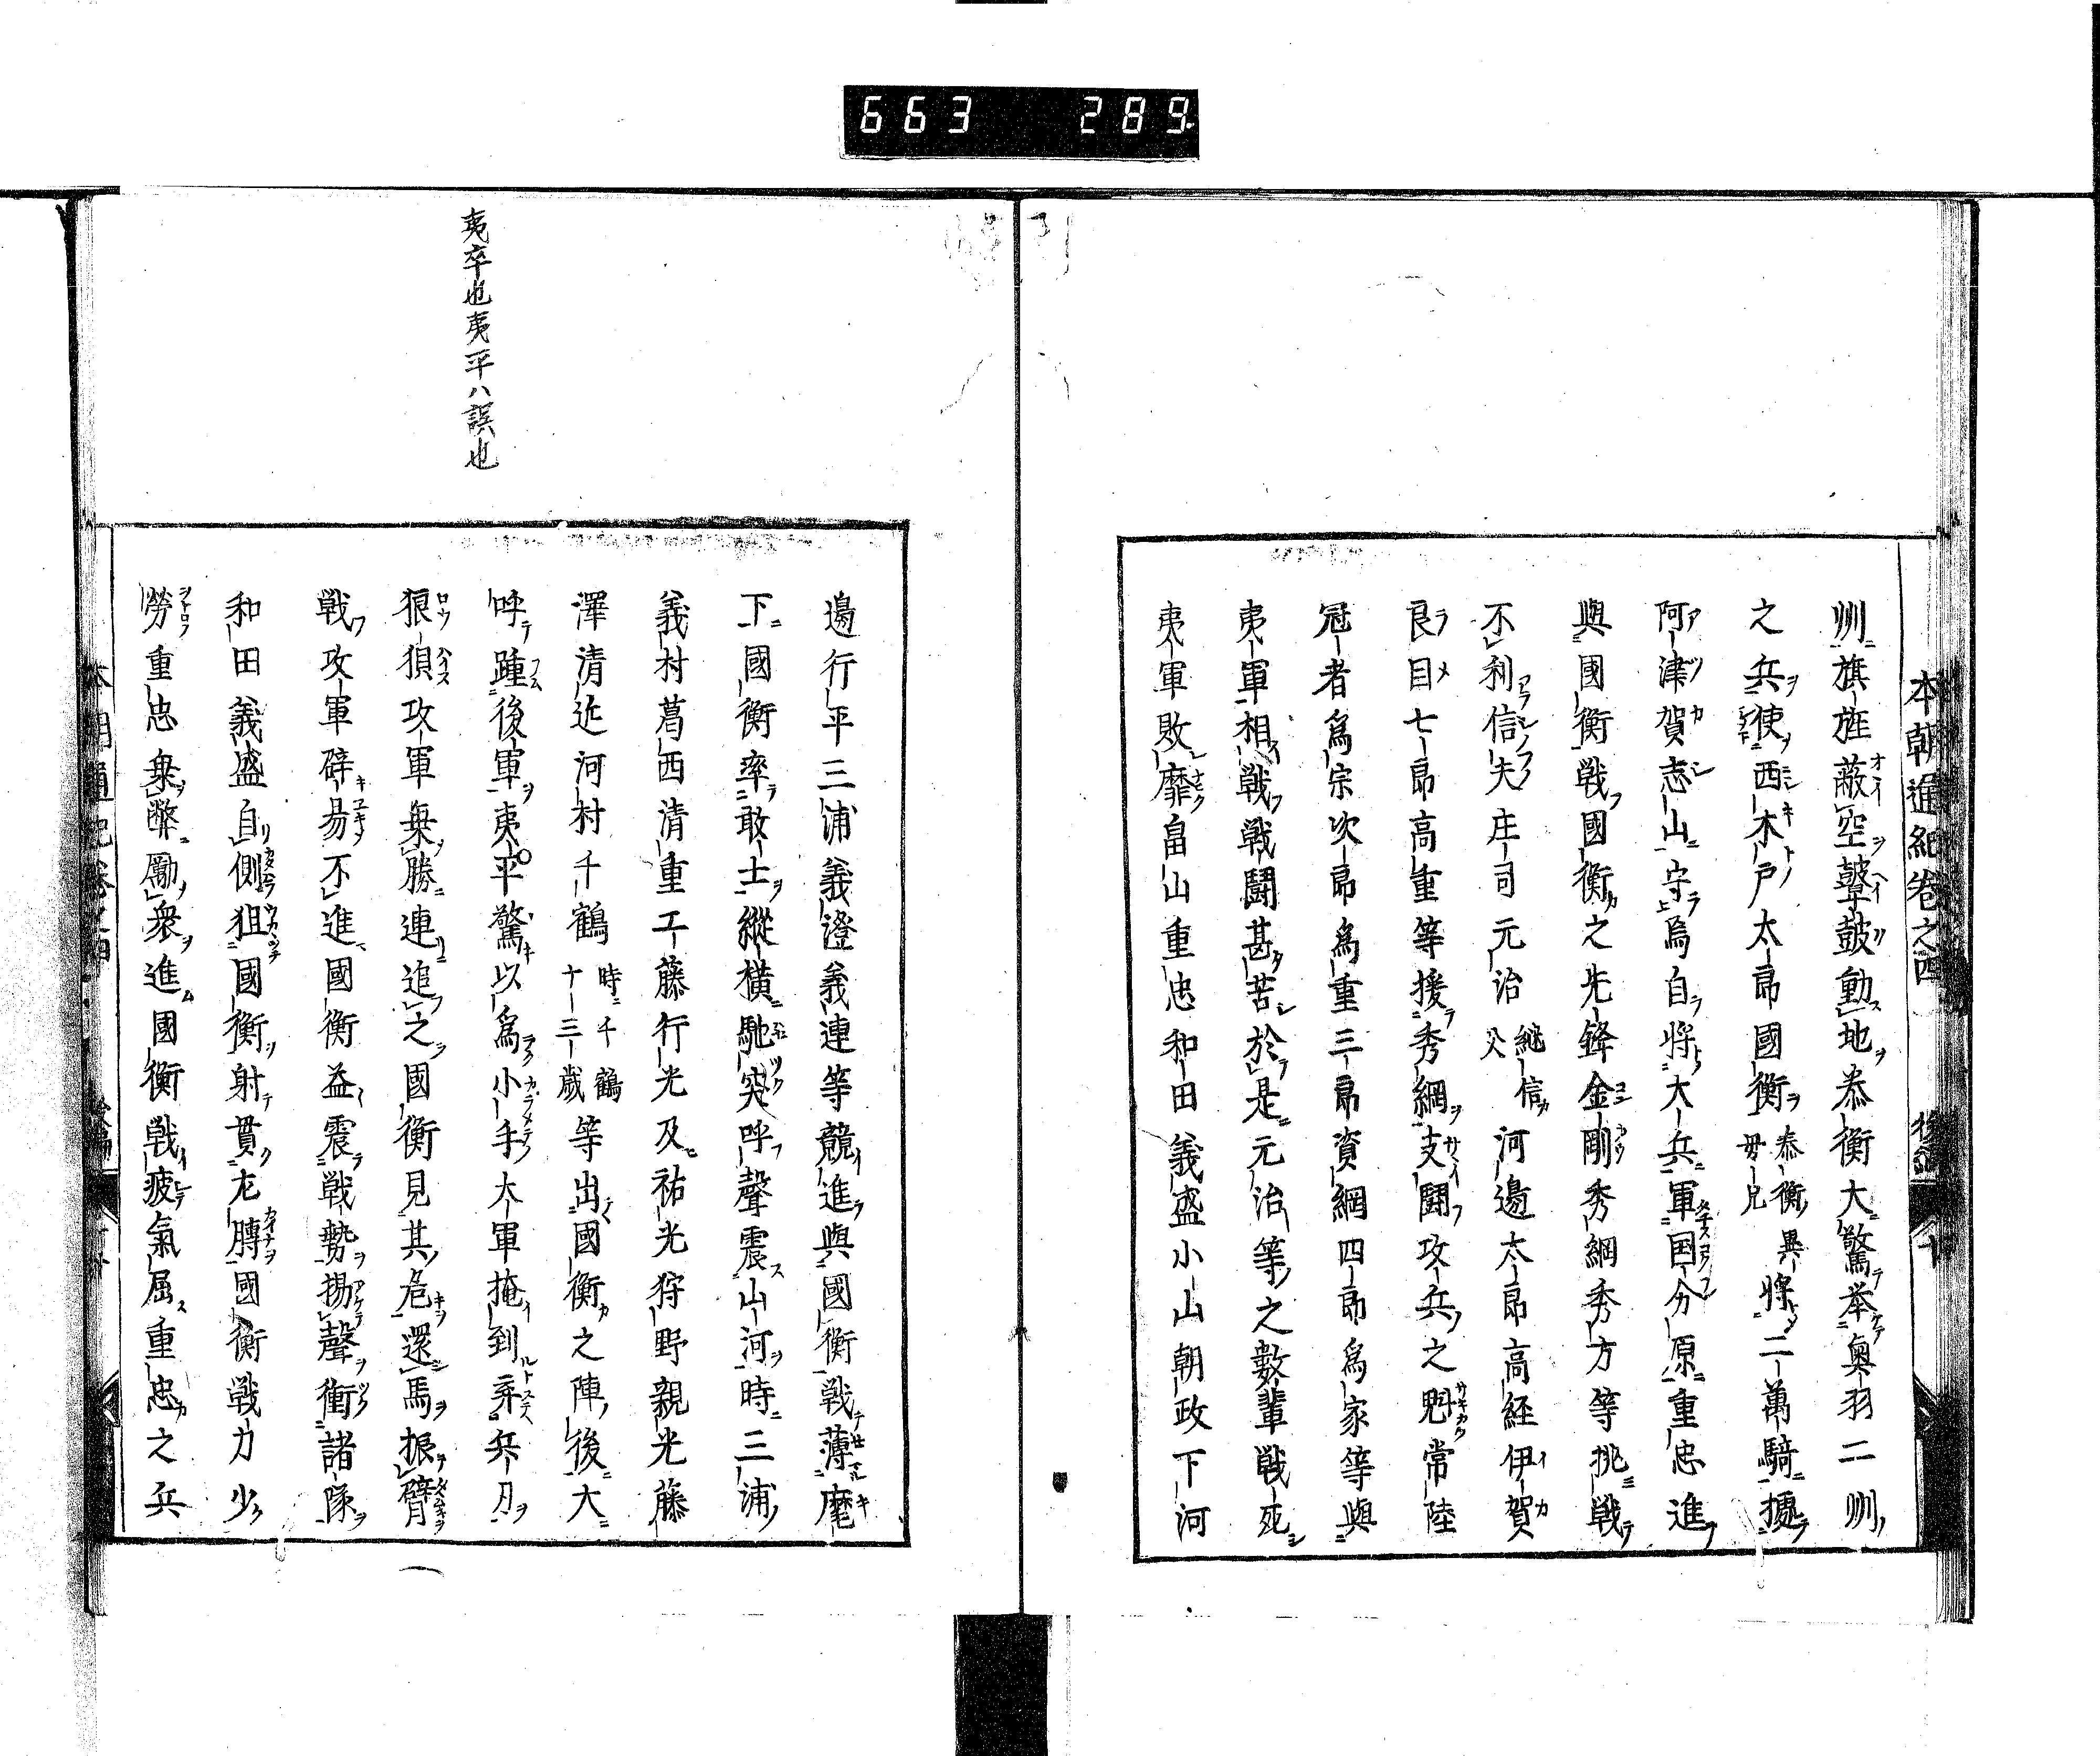 663 289
本朝通紀卷之四 後編 十
州旗旌蔽空鼙鼓動地泰衡大驚举奥羽二州
之兵使西木戸太郎國衡泰衡異母兄將二萬騎擾
阿津賀志山守烏自將大兵軍国分原重忠進
與國衡戦國衡之先鋒金剛秀綱秀方等挑戦
不利信夫庄司元治継信父河邊太郎高経伊賀
良目七郎高重等援秀綱支闘攻兵之魁常陸
冠者爲宗次郎爲重三郎資綱四郎爲家等與
夷軍相戦戦闘甚苦於是元治等之數輩戦死
夷軍敗靡畠山重忠和田義盛小山朝政下河
夷卒也夷平ハ誤也
邊行平三浦義澄義連等競進與國衡戦薄麾
下國衡率敢士縱横馳突呼聲震山河時三浦
義村葛西清重工藤行光及祐光狩野親光藤
澤清近河村千鶴時千鶴十三歳等出國衡之陣後大
呼踵後軍夷平驚以爲小手大軍掩到棄兵刀
狼狽攻軍乗勝連追之國衡見其危還馬振臂
戦攻軍辟易不進國衡益震戦勢揚聲衝諸隊
和田義盛自側狙國衡射貫左膊國衡戦力少
勞重忠乗弊勵衆進國衡戦疲氣屈重忠之兵